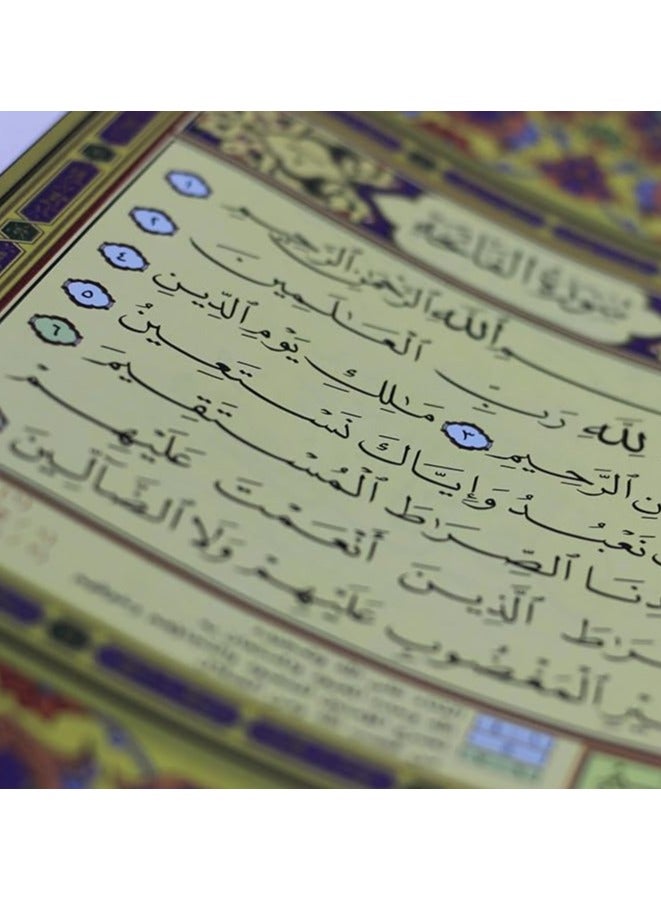 سُورَةُ الفَاتِحَةِ
ـمِ ٱللَّهِ ٱلرَّحْمَٰنِ ٱلرَّحِيمِ ١
لِلَّهِ رَبِّ ٱلْعَٰلَمِينَ ٢
ـنِ ٱلرَّحِيمِ ٣ مَٰلِكِ يَوْمِ ٱلدِّينِ ٤
نَعْبُدُ وَإِيَّاكَ نَسْتَعِينُ ٥
ـدِنَا ٱلصِّرَٰطَ ٱلْمُسْتَقِيمَ ٦
ـرَٰطَ ٱلَّذِينَ أَنْعَمْتَ عَلَيْهِمْ
ـيْرِ ٱلْمَغْضُوبِ عَلَيْهِمْ وَلَا ٱلضَّآلِّينَ